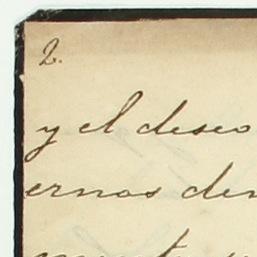 2.
y el deseo
ernos den